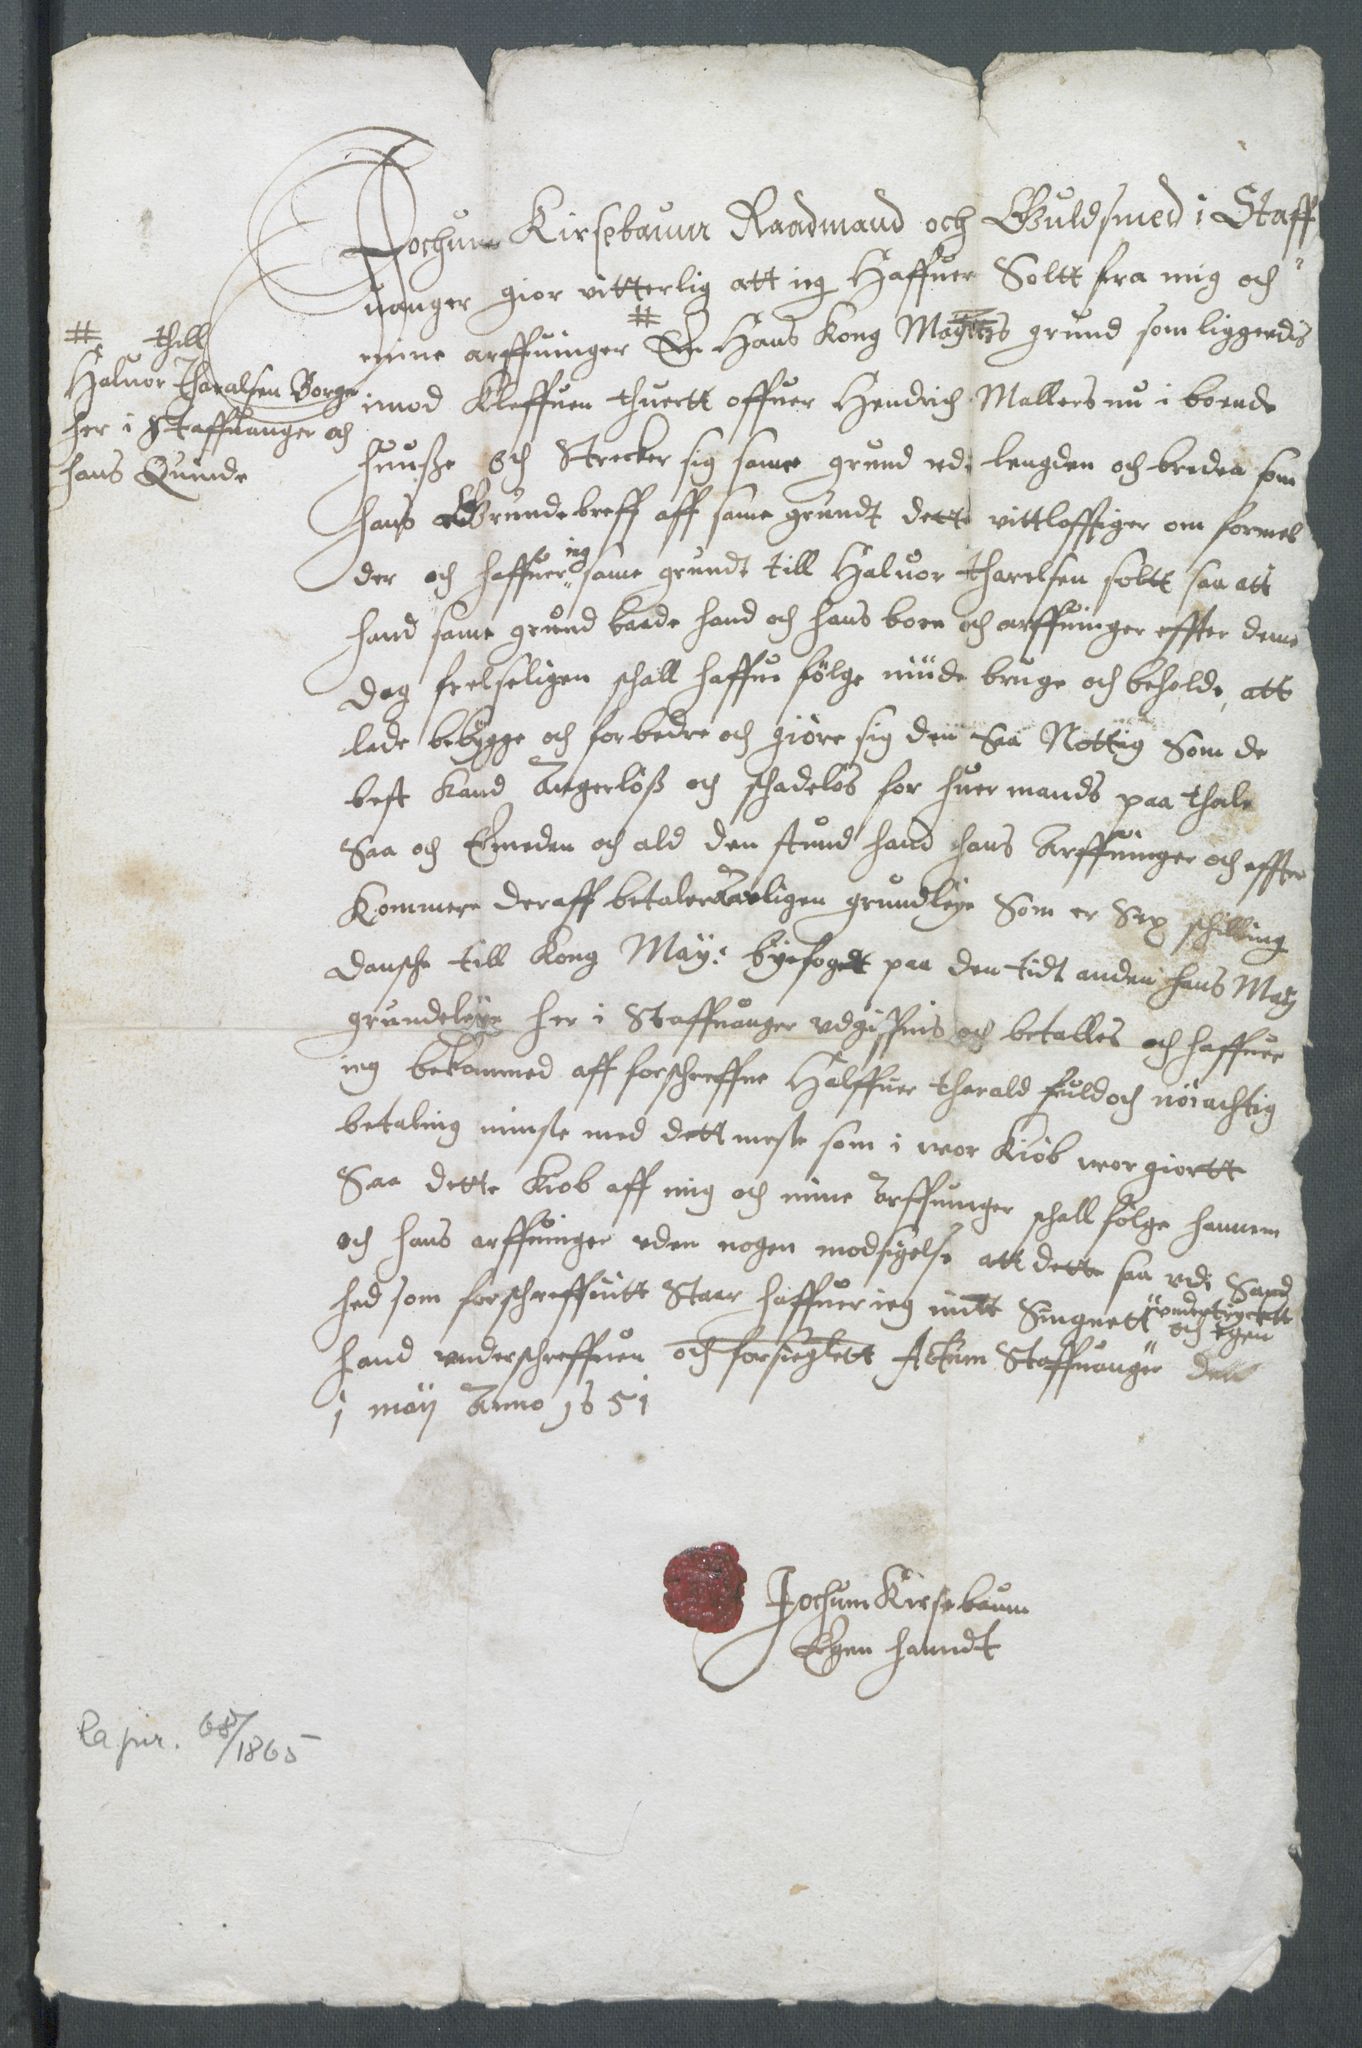 Jochum Kirsebaum Raadmand och Guldsmed i Staff
uanger gior vitterlig att ieg Haffuer Soltt fra mig och
mine arffuinger # En Hans Kong Maÿtts grund som liggendis
# thill
Haluor Tharalsen Borger
her i Staffuanger och
hans Quinde
imod Kleffuen thuertt offuer Hendrich Mallers nu i boende
huusße Och Strecker sig same grund udi lengden och breden som
hans Grundebreff aff same grundt dette vittløfftiger om formel
der och haffuer ieg same grundt till Haluor tharelsen soltt saa att
hand same grund baade hand och hans børn och arffuinger effter denne
dag frelseligen schall haffue følge nÿde bruge och beholde, att
lade bebÿgge och forbedre och giøre sig den saa Nøttig som de
best kand Angerløß och schadeløs for huer mands paa thale
Saa och Emeden och ald den stund hand hans Arffuinger och effter
kommere deraff betaler Aarligen grundleÿe Som er Sex schilling
dansche till Kong Maÿ: bÿefogett paa den tidt anden hans Maÿ
grundeleÿe her i Staffuanger udgiffuis och betalles och haffuer
ieg bekommed aff forschreffne Halffuer tharald fuld och nøiachtig
betaling minste med dett meste som i wor Kiøb wor giortt
Saa dette Kiøb aff mig och mine Arffuinger schall følge hannem
och hans arffuinger uden nogen modsigelse att dette saa udi Sand
hed som forschreffuitt Staar haffuer ieg mitt Singnett undertryckett
och egen
hand underschreffuen och forsieglett Actum Staffuanger den
1 maÿ Anno 1651
Jochum Kirsebaum
Egen handt
Ra jnr. 68/1865